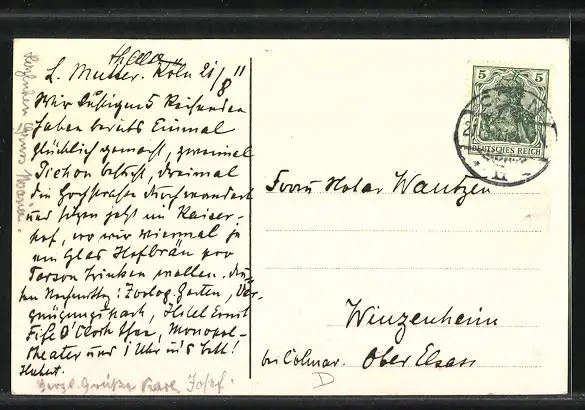 L. Mutter. Köln 21/8 11
Wir lustigen 5 Reisenden
haben bereits Einmal
glücklich gemacht, zweimal
besucht, dreimal
die Hochstrasse durchwandert
und sitzen jetzt im Kaiser-
hof, wo wir viermal je
ein Glas Hofbräu pro
Person trinken wollen.
Zoolog. Garten, Ver-
gnügungspark, Hotel Ernst
Five O'Clock Thee, Monopol-
theater und 1 Uhr ins Bett!
Herzl. Grüße Karl Josef.
5 5
DEUTSCHES REICH
Herrn Notar Wantzen
Winzenheim
bei Colmar. Ober Elsass
D